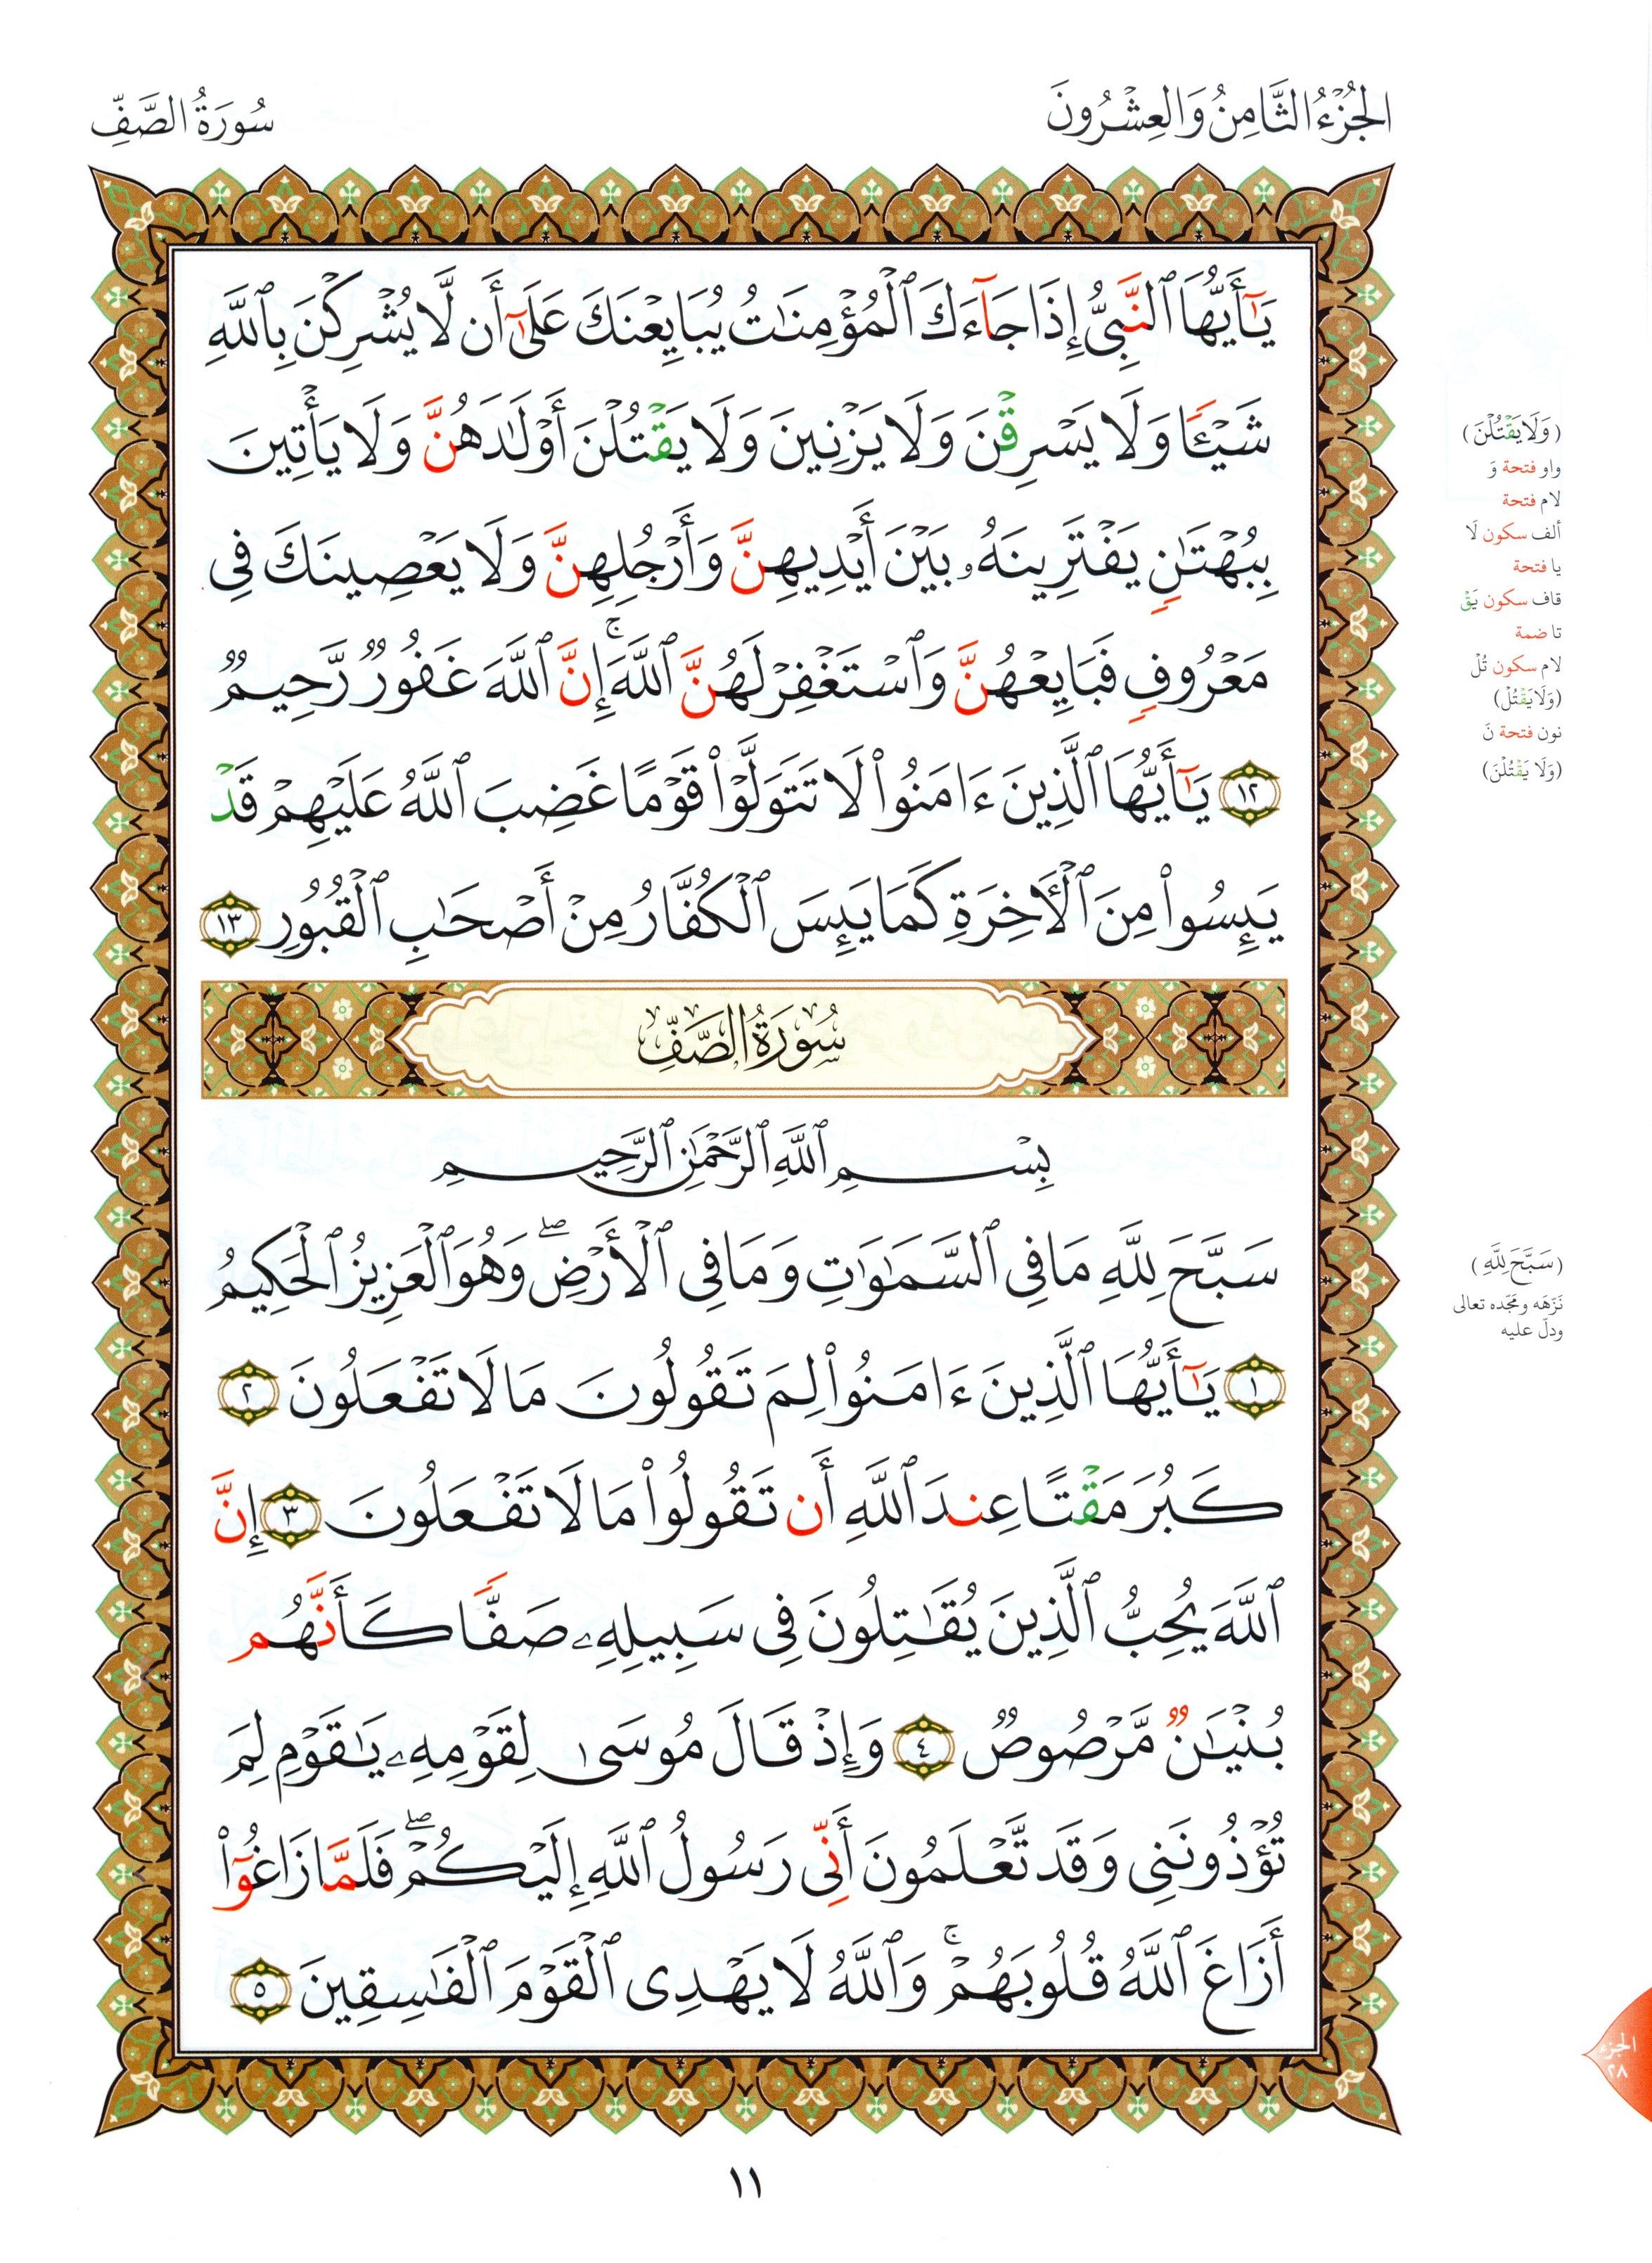 الجُزْءُ الثَّامِنُ وَالعِشْرُونَ
سُورَةُ الصَّفِّ
يَٰٓأَيُّهَا ٱلنَّبِىُّ إِذَا جَآءَكَ ٱلْمُؤْمِنَٰتُ يُبَايِعْنَكَ عَلَىٰٓ أَن لَّا يُشْرِكْنَ بِٱللَّهِ
شَيْـًٔا وَلَا يَسْرِقْنَ وَلَا يَزْنِينَ وَلَا يَقْتُلْنَ أَوْلَٰدَهُنَّ وَلَا يَأْتِينَ
بِبُهْتَٰنٍ يَفْتَرِينَهُۥ بَيْنَ أَيْدِيهِنَّ وَأَرْجُلِهِنَّ وَلَا يَعْصِينَكَ فِى
مَعْرُوفٍ فَبَايِعْهُنَّ وَٱسْتَغْفِرْ لَهُنَّ ٱللَّهَ ۚ إِنَّ ٱللَّهَ غَفُورٌ رَّحِيمٌ
١٢ يَٰٓأَيُّهَا ٱلَّذِينَ ءَامَنُوا۟ لَا تَتَوَلَّوْا۟ قَوْمًا غَضِبَ ٱللَّهُ عَلَيْهِمْ قَدْ
يَئِسُوا۟ مِنَ ٱلْـَٔاخِرَةِ كَمَا يَئِسَ ٱلْكُفَّارُ مِنْ أَصْحَٰبِ ٱلْقُبُورِ ١٣
سُورَةُ الصَّفِّ
بِسْمِ ٱللَّهِ ٱلرَّحْمَٰنِ ٱلرَّحِيمِ
سَبَّحَ لِلَّهِ مَا فِى ٱلسَّمَٰوَٰتِ وَمَا فِى ٱلْأَرْضِ ۖ وَهُوَ ٱلْعَزِيزُ ٱلْحَكِيمُ
١ يَٰٓأَيُّهَا ٱلَّذِينَ ءَامَنُوا۟ لِمَ تَقُولُونَ مَا لَا تَفْعَلُونَ ٢
كَبُرَ مَقْتًا عِندَ ٱللَّهِ أَن تَقُولُوا۟ مَا لَا تَفْعَلُونَ ٣ إِنَّ
ٱللَّهَ يُحِبُّ ٱلَّذِينَ يُقَٰتِلُونَ فِى سَبِيلِهِۦ صَفًّا كَأَنَّهُم
بُنْيَٰنٌ مَّرْصُوصٌ ٤ وَإِذْ قَالَ مُوسَىٰ لِقَوْمِهِۦ يَٰقَوْمِ لِمَ
تُؤْذُونَنِى وَقَد تَّعْلَمُونَ أَنِّى رَسُولُ ٱللَّهِ إِلَيْكُمْ ۖ فَلَمَّا زَاغُوٓا۟
أَزَاغَ ٱللَّهُ قُلُوبَهُمْ ۚ وَٱللَّهُ لَا يَهْدِى ٱلْقَوْمَ ٱلْفَٰسِقِينَ ٥
(وَلَا يَقْتُلْنَ)
واو فتحة وَ
لام فتحة
ألف سكون لَا
يا فتحة
قاف سكون يَقْ
تا ضمة
لام سكون تُلْ
(وَلَا يَقْتُلْ)
نون فتحة نَ
(وَلَا يَقْتُلْنَ)
(سَبَّحَ لِلَّهِ)
نَزّهَه ومَجّده تعالى
ودلّ عليه
الجزء
٢٨
١١